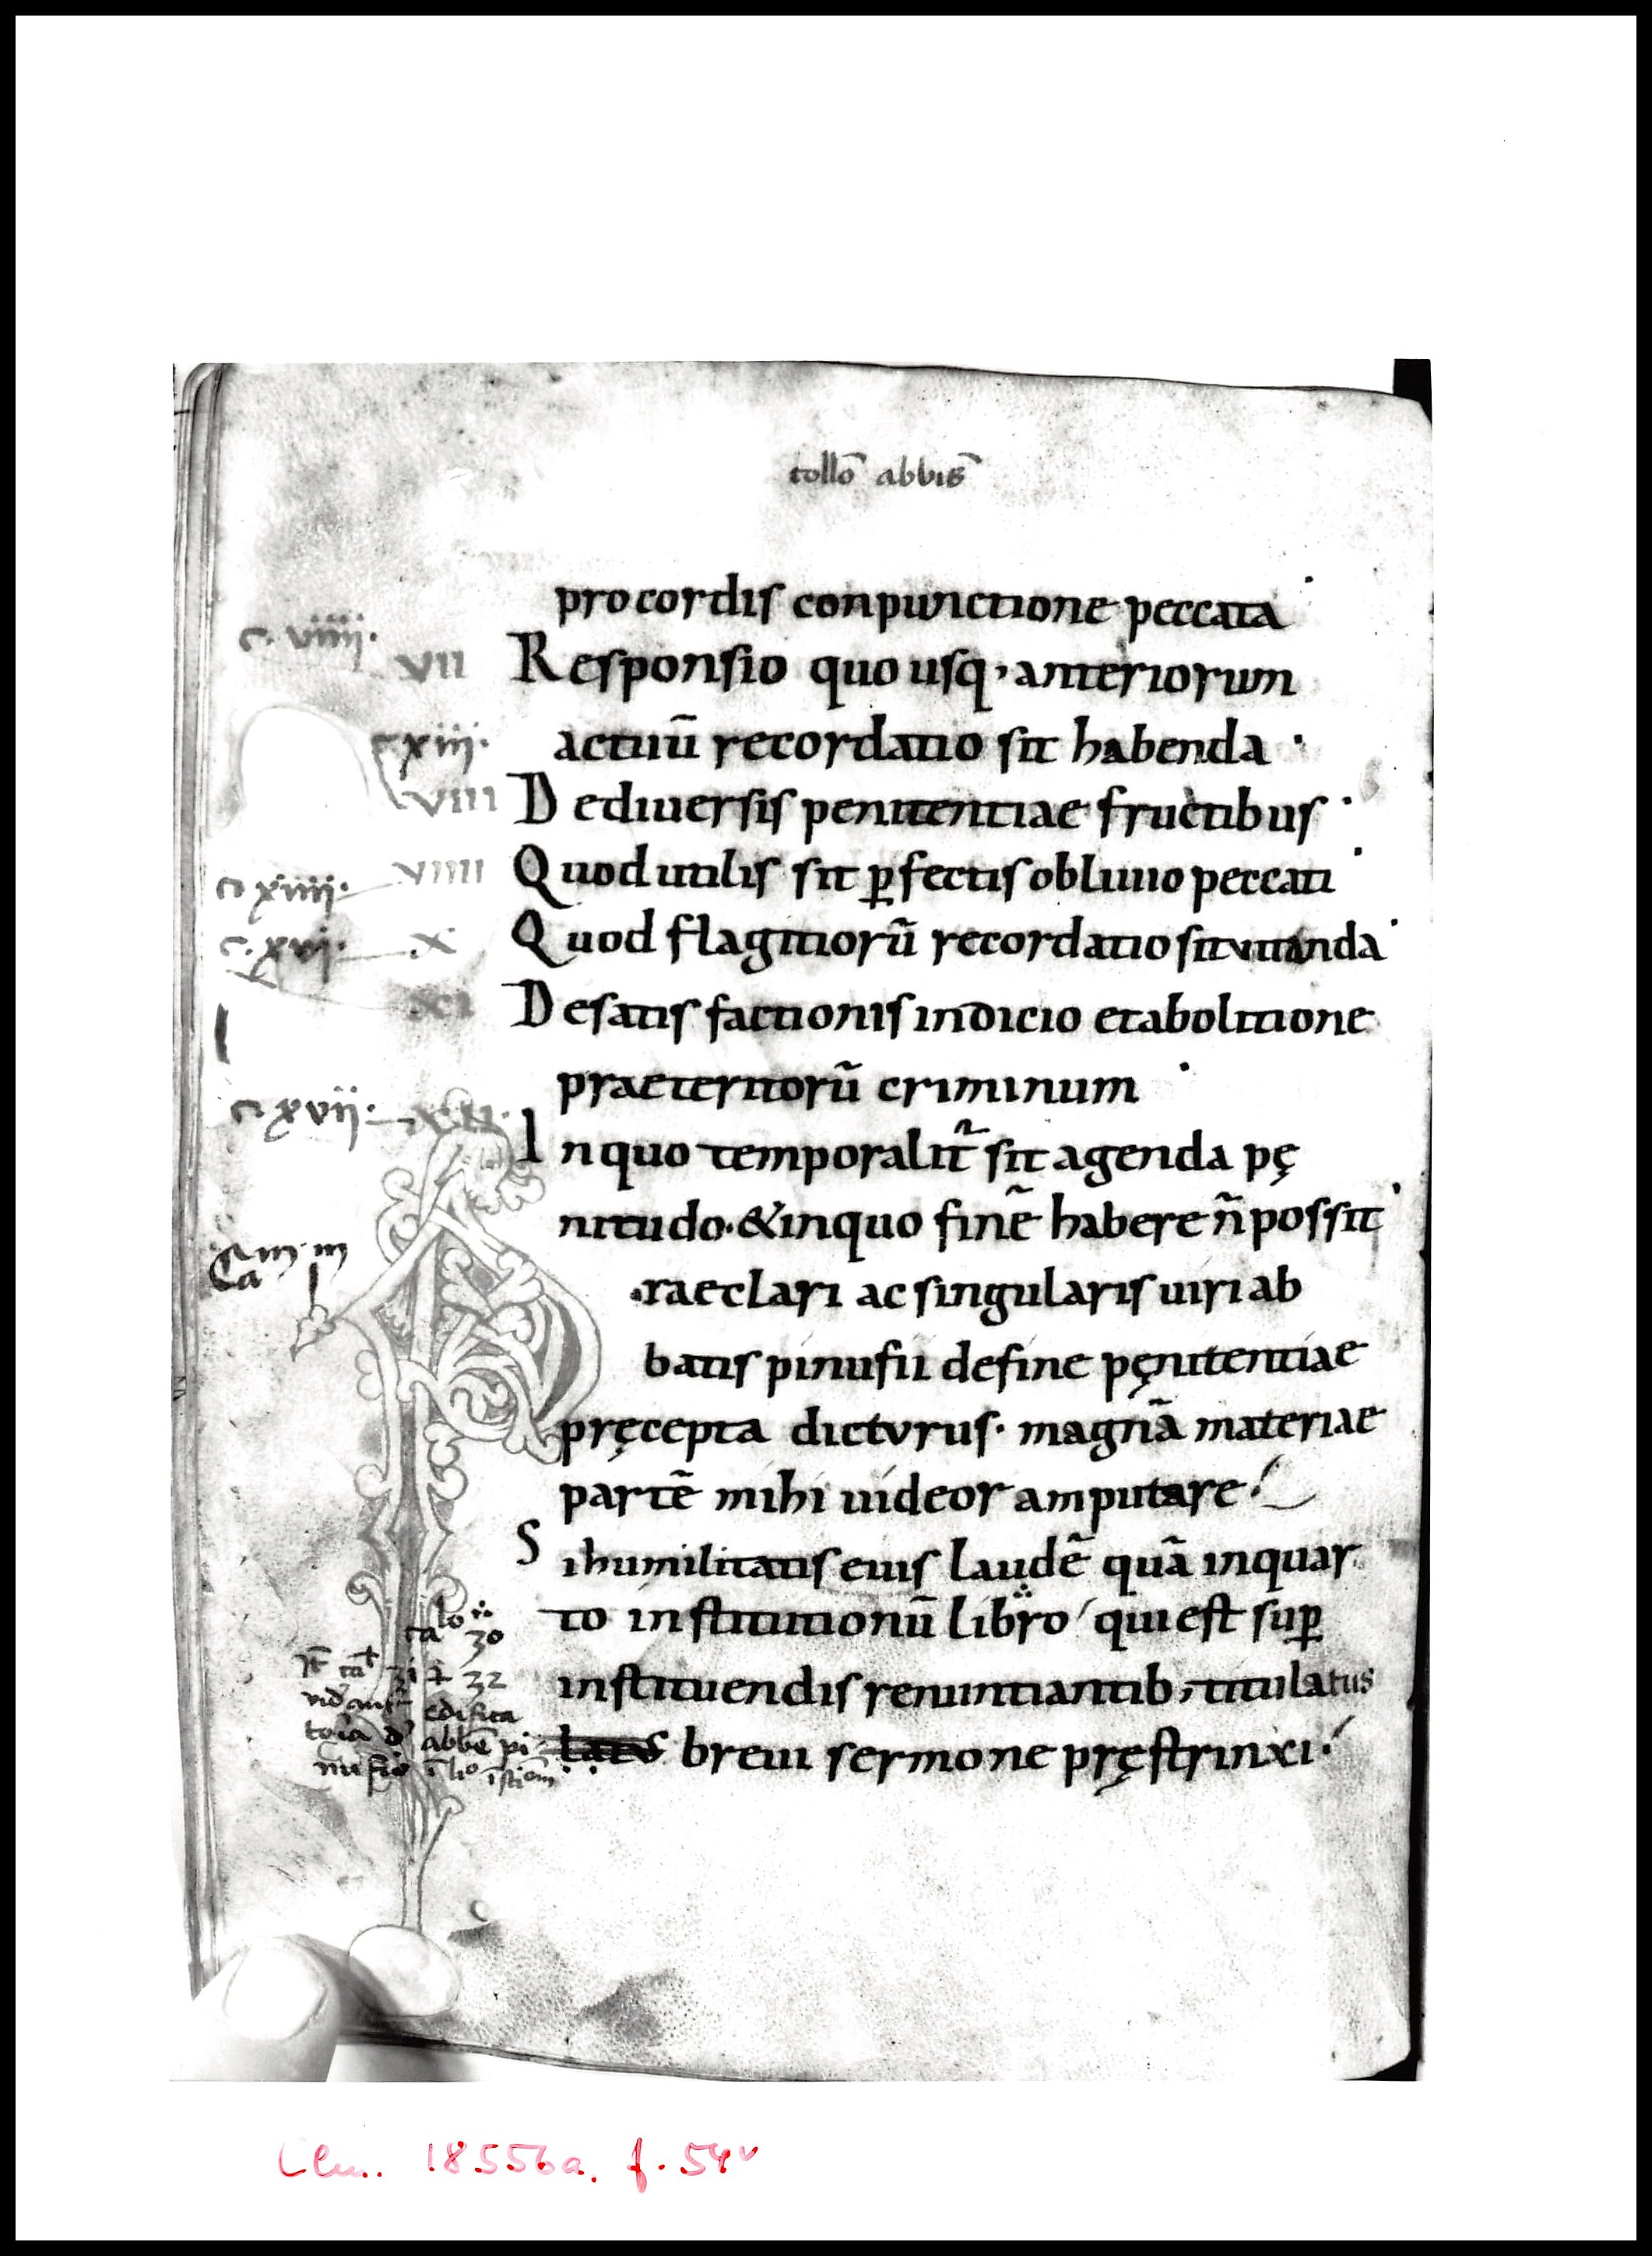 tollō abbis̄
pro cordis conpunctione peccata
c. viiii.
VII Responsio quo usq, anteriorum
c xiii. actuū recordatio sit habenda
VIII De diuersis penitentiae fructibus
c xiiii. VIIII Quod utilis sit ꝑfectis obliuio peccati
c. xvi. X Quod flagitiorū recordatio sit uitanda
XI De satis factionis indicio et abolitione
praeteritorū criminum
c xvii. XII. In quo temporalit̄ sit agenda pę
nitudo. & in quo finē habere ñ possit
Praeclari ac singularis uiri ab
batis pinufii de fine pęnitentiae
pręcepta dicturus. magnā materiae
partē mihi uideor amputare.
Si humilitatis eius laudē quā in quar
to institutionū libro qui est suꝑ
instituendis renuntiantib, titulatus
latus breui sermone pręstrinxi.
ca lo 30
31 32
edifica
abbē pi
Clm. 18556a. f. 54v